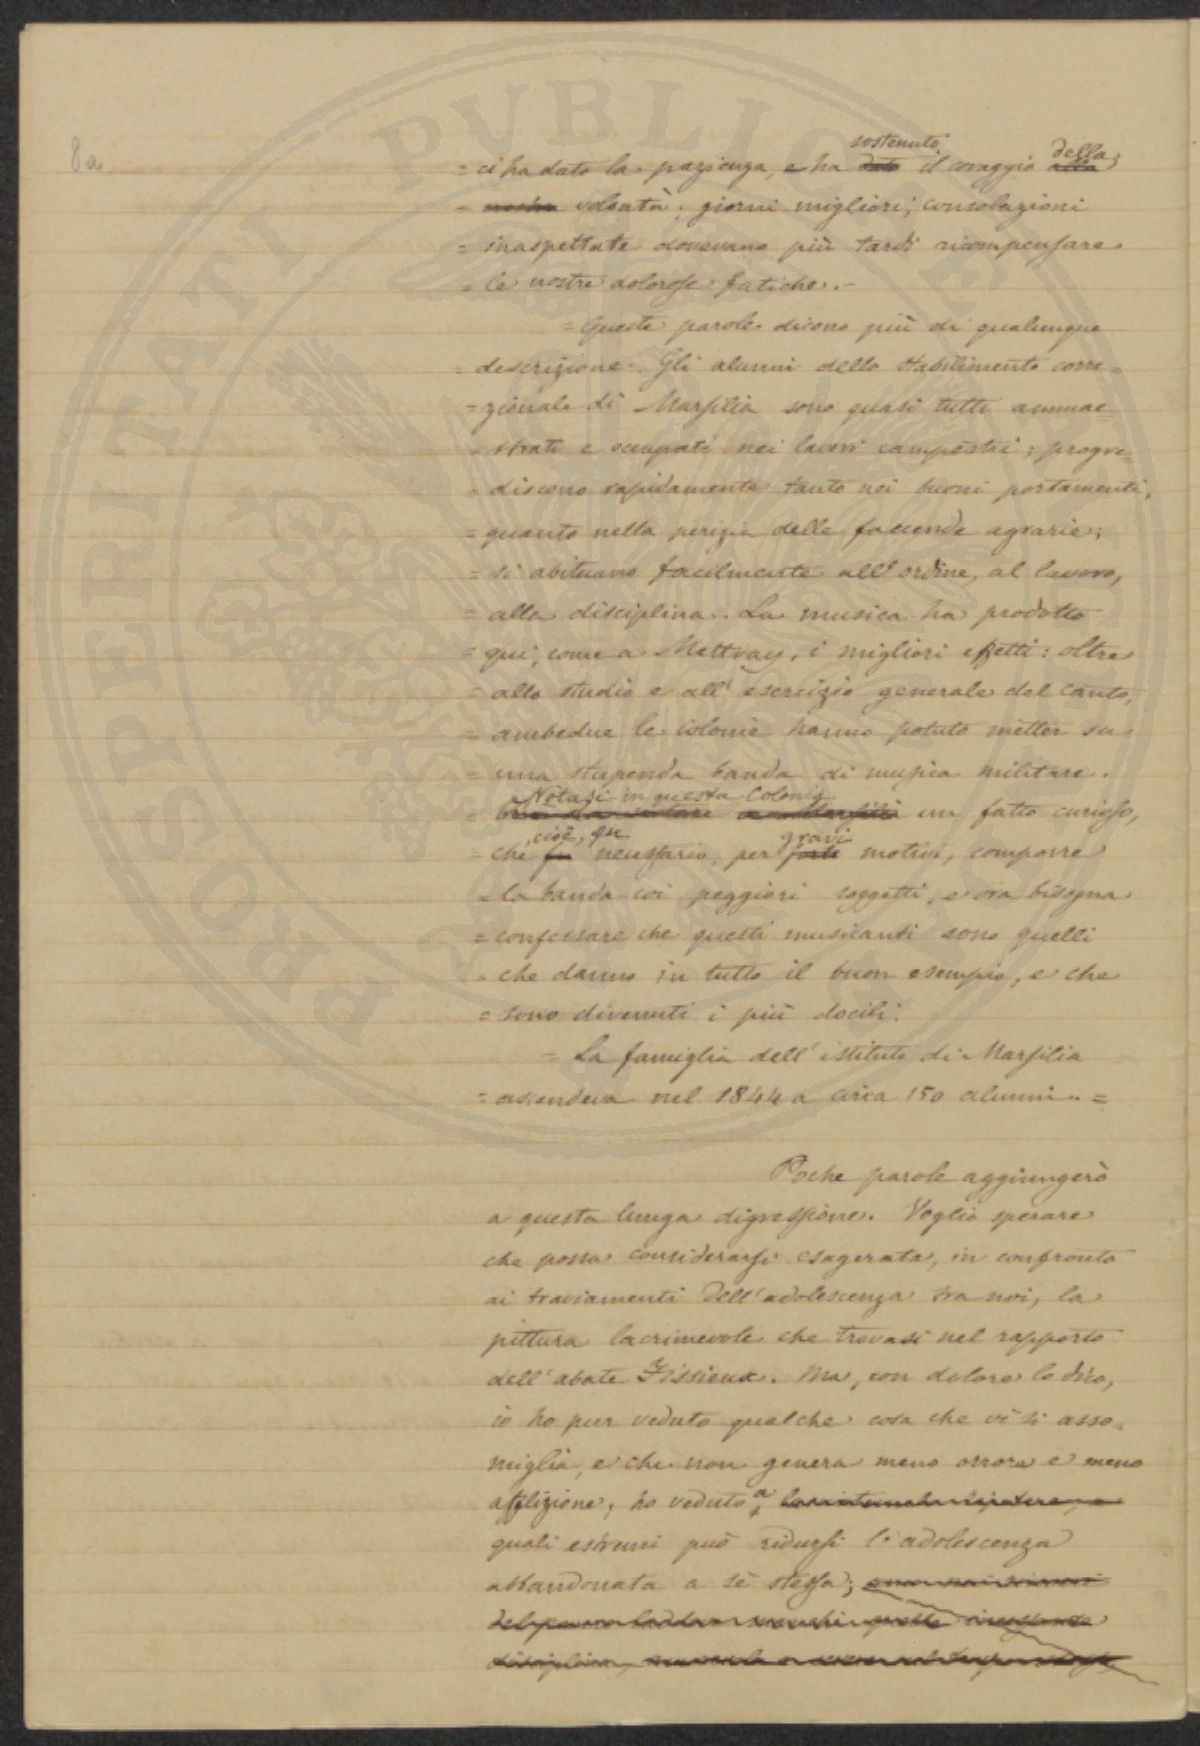 8a
sostenuto della
= ci ha dato la pazienza, e ha dato il coraggio alla
= nostra volontà; giorni migliori, consolazioni
= inaspettate dovevano più tardi ricompensare
= le nostre dolorose fatiche. –
= Queste parole dicono più di qualunque
= descrizione. Gli alunni dello stabilimento corre=
= zionale di Marsilia sono quasi tutti ammae=
= strati e occupati nei lavori campestri; progre=
= discono rapidamente tanto nei buoni portamenti,
= quanto nella perizia delle faccende agrarie;
= si abituano facilmente all'ordine, al lavoro,
= alla disciplina. La musica ha prodotto
= qui, come a Mettray, i migliori effetti: oltre
= allo studio e all'esercizio generale del canto,
= ambedue le colonie hanno potuto metter su
= una stupenda banda di musica militare.
Notasi in questa Colonia
= un fatto curioso,
cioè, fu gravi
= che fu necessario, per forti motivi, comporre
= la banda coi peggiori soggetti, e ora bisogna
= confessare che questi musicanti sono quelli
= che danno in tutto il buon esempio, e che
= sono divenuti i più docili.
= La famiglia dell'istituto di Marsilia
= ascendeva nel 1844 a circa 150 alunni. =
Poche parole aggiungerò
a questa lunga digressione. Voglio sperare
che possa considerarsi esagerata, in confronto
ai traviamenti dell'adolescenza tra noi, la
pittura lacrimevole che trovasi nel rapporto
dell'abate Fissieux. Ma, con dolore lo dico,
io ho pur veduto qualche cosa che vi si asso=
miglia, e che non genera meno orrore e meno
afflizione; ho veduto a
quali estremi può ridursi l'adolescenza
abbandonata a sè stessa;
PROSPERITATI PUBLICAE